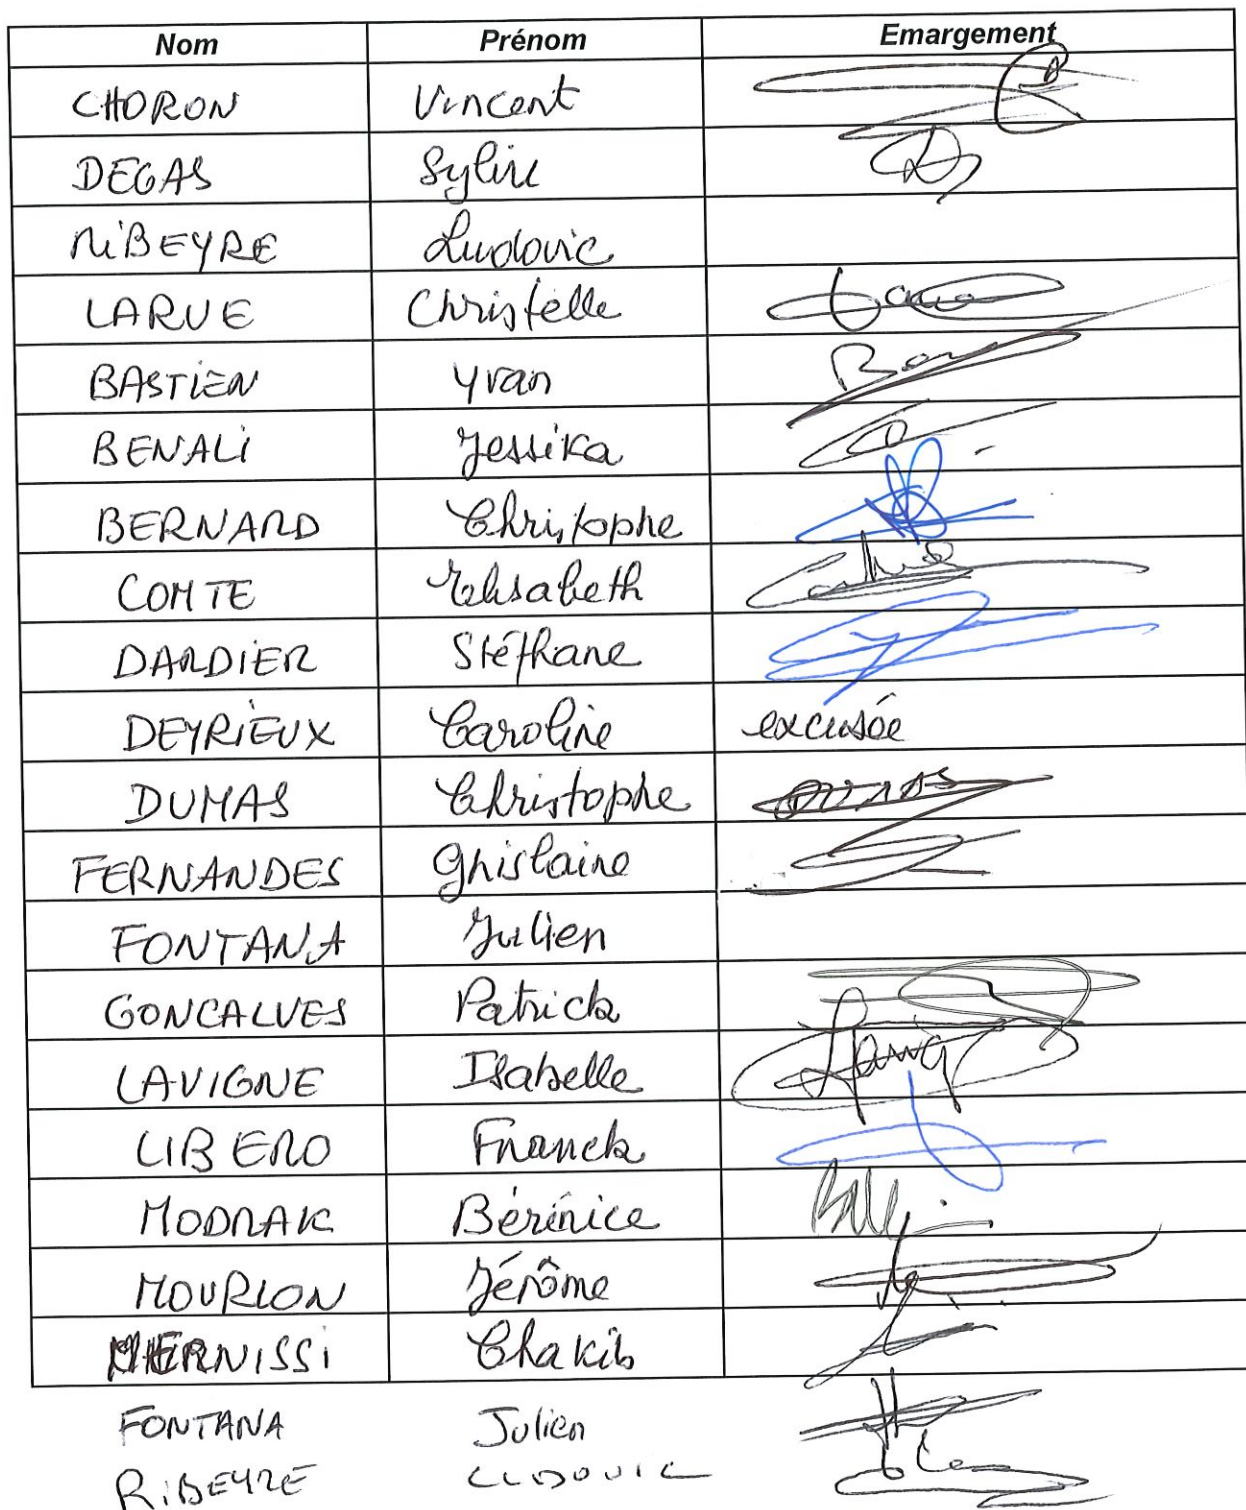 Nom Prénom Emargement
CHORON Vincent
DEGAS Sylvie
RIBEYRE Ludovic
LARUE Christelle
BASTIEN Yvan
BENALI Jessika
BERNARD Christophe
COMTE Elisabeth
DARDIER Stéphane
DEYRIEUX Caroline excusée
DUMAS Christophe
FERNANDES Ghislaine
FONTANA Julien
GONCALVES Patrick
LAVIGNE Isabelle
LIBERO Franck
MODRAK Bérénice
MOURLON Jérôme
MERNISSI Chakib
FONTANA Julien
RIBEYRE LUDOVIC